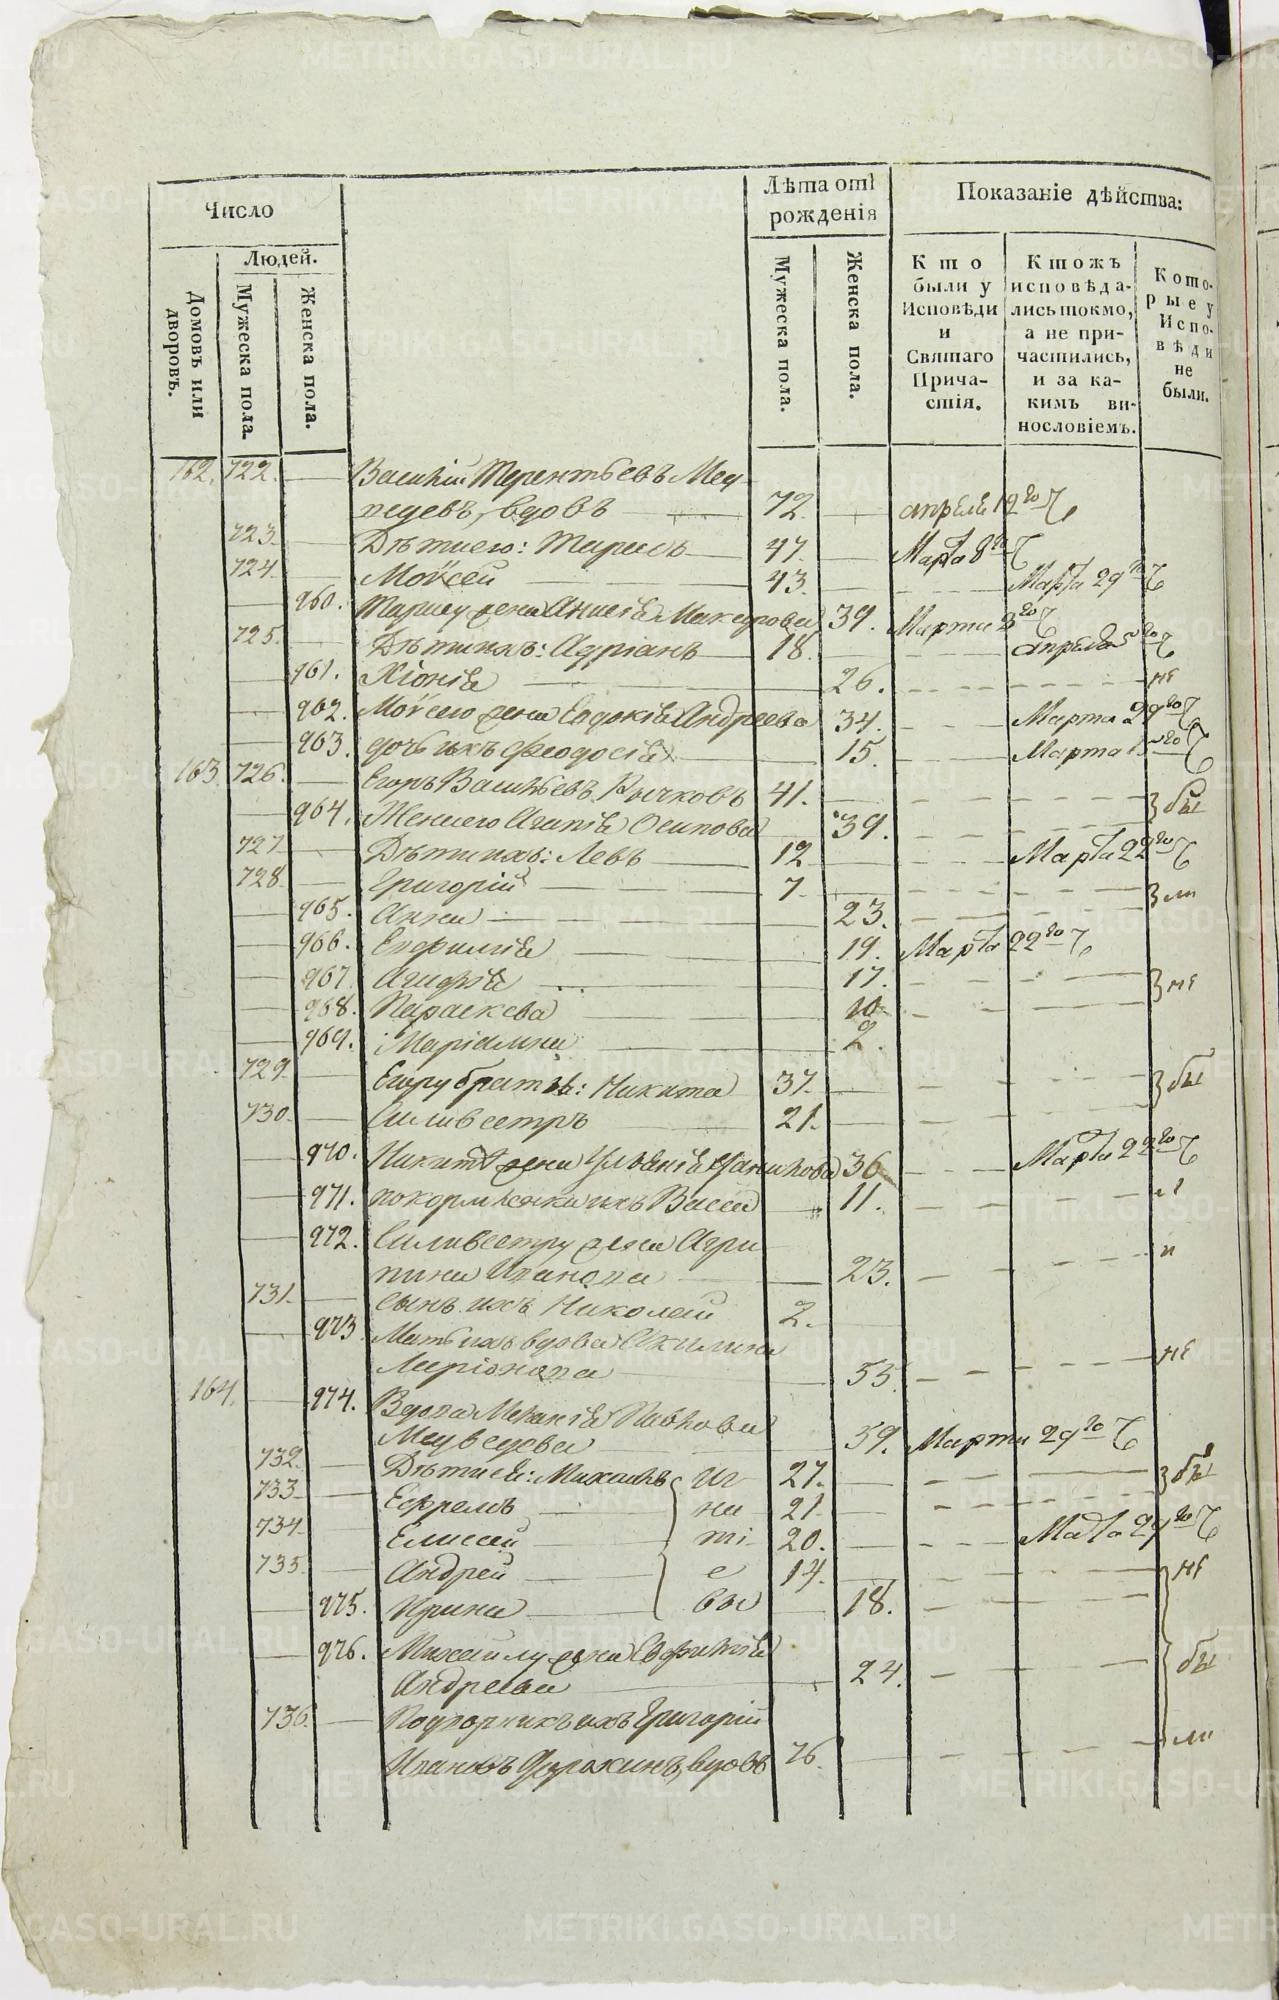 Число
Лѣта отъ рожденія
Показаніе дѣйства:
Людей.
Домовъ или дворовъ.
Мужеска пола.
Женска пола.
Мужеска пола.
Женска пола.
Кто были у Исповѣди и Святаго Причастія.
Ктожъ исповѣдались токмо, а не причастились, и за какимъ винословіемъ.
Которые у Исповѣди не были.
162. 722. Василій Терентьевъ Мед
ведевъ, вдовъ 72 апреля 12го
723. Дѣти его: Тарасъ 47. Марта 8го
724. Мойсей 43. Марта 29го
960. Тарасу жена Анисія Макарова 39. Марта
725. Дѣти ихъ: Адріанъ 18. апреля
961. Хіонія 26. не
962. Мойсею жена Евдокія Андреева 34. Марта 29го
963. дочь ихъ Феодосія 15. Марта
163. 726. Егоръ Васильевъ Рычковъ 41. бы
964. Жена его Агапія Осипова 39.
727. Дѣти ихъ: Левъ 12 Марта 22го
728. Григорій 7. ли
965. Анна 23.
966. Евфимія 19. Марта 22го
967. Агафія 17. не
968. Параскева 10
969. Маріамна 2.
729. Егору братья: Никита 37. бы
730. Силивестръ 21.
970. Никитѣ жена Ульянія 36 Марта 22го
971. покормленка ихъ Васса 11.
972. Силивестру жена Агри
пина Иванова 23.
731. сынъ ихъ Николай 2.
973 Мать ихъ вдова Акилина
Ларіонова 55. не
164. 974. Вдова Меланія Павлова
Медведева 59. Марта 29го
732. Дѣти ея: Михаилъ Иг 27. бы
733. Ефремъ на 21.
734. Елисей ті 20. Марта 29го
735. Андрей е 14. не
975. Ирина вы 18.
976. Михайлу жена Евфимія
Андреева 24. бы
736. Подворникъ ихъ Григорій
Ивановъ вдовъ 76. ли
METRIKI.GASO-URAL.RU